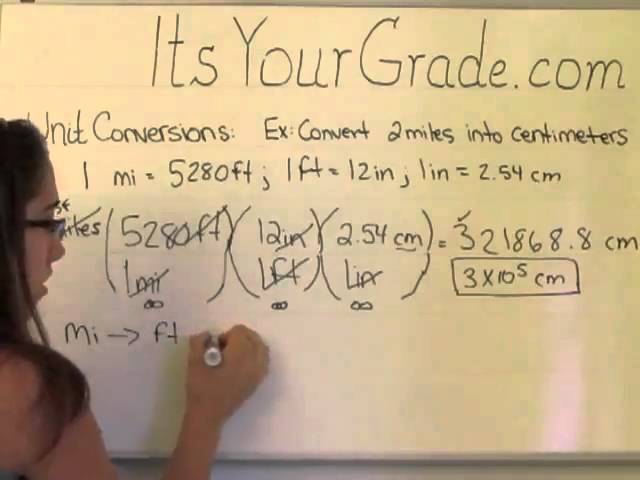 ItsYourGrade.com
Unit Conversions: Ex: Convert 2miles into centimeters
1 mi = 5280ft; 1ft = 12in; 1in = 2.54 cm
miles (5280ft)(12in)(2.54 cm) = 321868.8 cm
1mi 1ft 1in 3x10⁵ cm
∞ ∞ ∞
Mi → ft